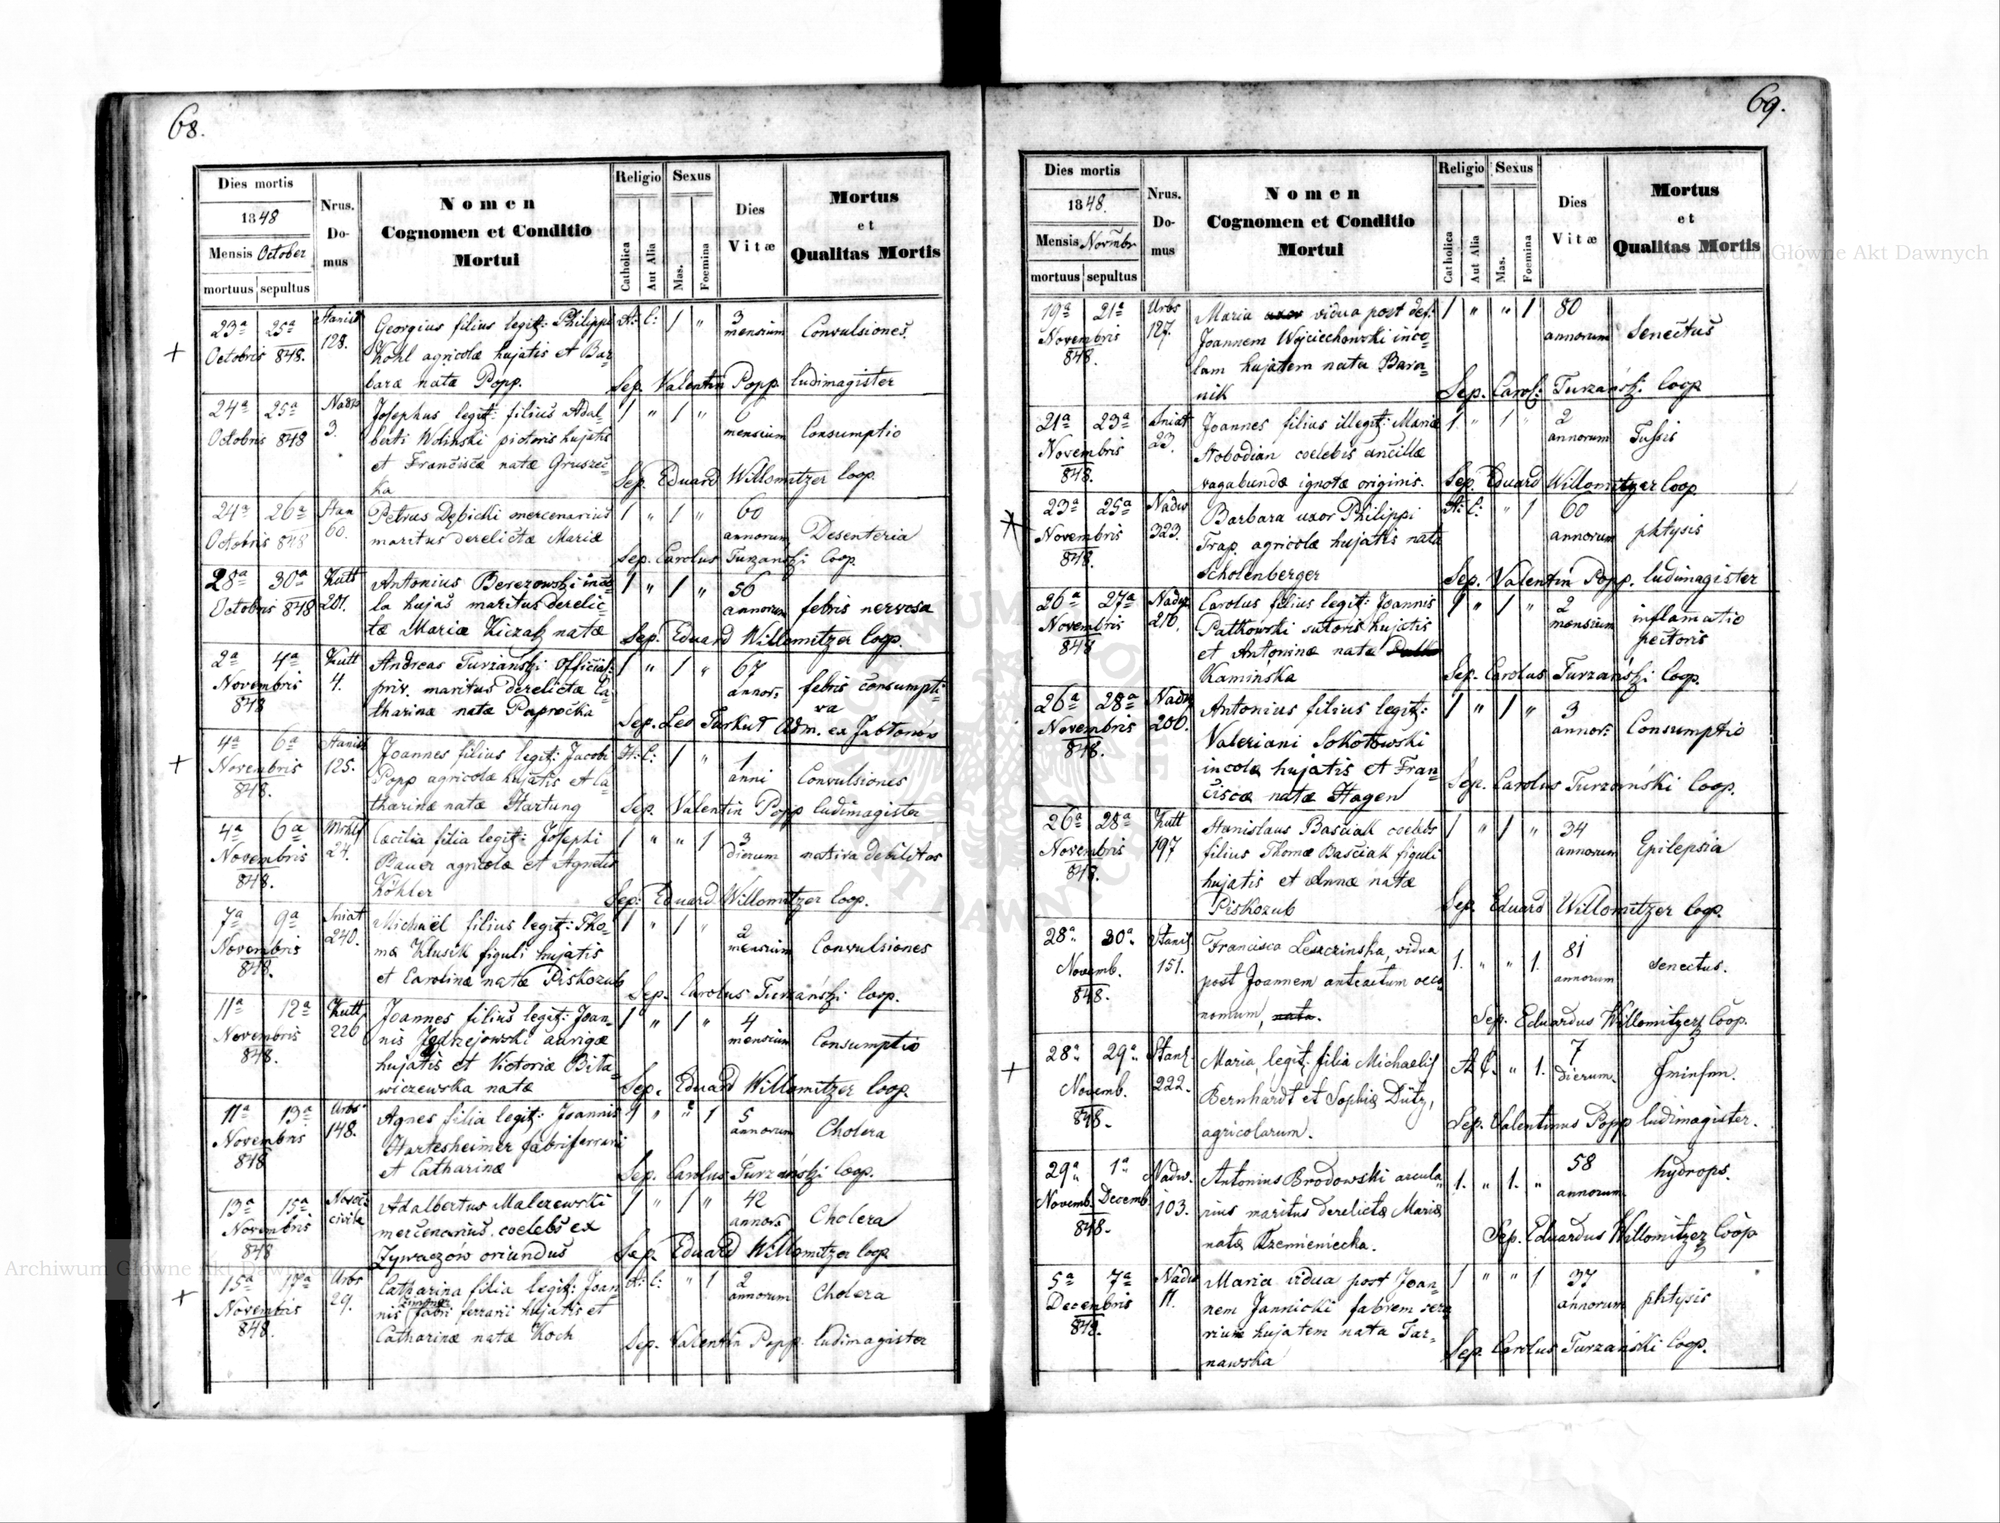 68.
Dies mortis
1848
Mensis October
mortuus sepultus
Nrus.
Do-
mus
Nomen
Cognomen et Conditio
Mortui
Religio
Catholica
Aut Alia
Sexus
Mas.
Foemina
Dies
Vitæ
Mortus
et
Qualitas Mortis
23ª 25ª
Octobris 848.
128.
Georgius filius legit: Philippi
Kohl agricolæ hujatis et Bar-
baræ natæ Popp.
A: C: 1 "
3
mensium
Convulsiones
Sep. Valentin Popp ludimagister
24ª 25ª
Octobris 848
3.
Josephus legit: filius Adal-
berti Woliński pictoris hujatis
et Franciscæ natæ Gruszec-
ka
1 " 1 "
mensium
Consumptio
Sep. Eduard Willomitzer Coop.
24ª 26ª
Octobris 848
60.
Petrus Dębicki mercenarius
maritus derelictæ Mariæ
1 " 1 "
60
annorum
Desenteria
Sep. Carolus Turzański Coop.
28ª 30ª
Octobris 848
Kutt
201.
Antonius Berezowski inco-
la hujas maritus derelic-
tæ Mariæ Kiczak natæ
1 " 1 "
56
annorum
febris nervosa
Sep. Eduard Willomitzer Coop.
2ª 4ª
Novembris
848
Kutt
4.
Andreas Turzański Official:
priv. maritus derelictæ Ca-
tharinæ natæ Paprocka
1 " 1 "
67
annor:
febris consumpti-
va
Sep. Leo Turkut Adm. ex Jabłonów
4ª 6ª
Novembris
848.
125.
Joannes filius legit: Jacobi
Popp agricolæ hujatis et Ca-
tharinæ natæ Hartung
A: C: 1 "
1
anni
Convulsiones
Sep. Valentin Popp ludimagister
4ª 6ª
Novembris
848.
24.
Cæcilia filia legit: Josephi
Bauer agricolæ et Agnetis
Köhler
1 " " 1
3
dierum
nativa debilitas
Sep: Eduard Willomitzer Coop.
7ª 9ª
Novembris
848.
Sniat
240.
Michaël filius legit: Tho-
mæ Klusik figuli hujatis
et Carolinæ natæ Piskozub
1 " 1 "
2
mensium
Convulsiones
Sep. Carolus Turzański Coop.
11ª 12ª
Novembris
848.
Kutt
226
Joannes filius legit: Joan-
nis Jędrzejowski aurigæ
hujatis et Victoriæ Bita-
wiczewska natæ
1 " 1 "
4
mensium
Consumptio
Sep. Eduard Willomitzer Coop.
11ª 13ª
Novembris
848
Urbs
148.
Agnes filia legit: Joannis
Hartesheimer fabri ferrarii
et Catharinæ
1 " " 1
5
annorum
Cholera
Sep. Carolus Turzański Coop.
13ª 15ª
Novembris
848
Adalbertus Malczewski
mercenarius, coelebs ex
Zywaczów oriundus
1 " 1 "
42
annor:
Cholera
Sep. Eduard Willomitzer Coop
15ª 17ª
Novembris
848.
Urbs
29.
Catharina filia legit: Joan
nis fabri ferrarii hujatis et
Catharinæ natæ Koch
A: C: " 1
2
annorum
Cholera
Sep. Valentin Popp ludimagister
69.
Dies mortis
1848.
Mensis Novmbr
mortuus sepultus
Nrus.
Do-
mus
Nomen
Cognomen et Conditio
Mortui
Religio
Catholica
Aut Alia
Sexus
Mas.
Foemina
Dies
Vitæ
Mortus
et
Qualitas Mortis
19ª 21ª
Novembris
848.
Urbs
127.
Maria uxor vidua post def:
Joannem Wojciechowski inco-
lam hujatem nata Bara-
nik
1 " " 1
80
annorum
Senectus
Sep. Carol: Turzański Coop
21ª 23ª
Novembris
848.
Sniat
23.
Joannes filius illegit: Mariæ
Stobodian coelebis ancillæ
vagabundæ ignotæ originis.
1. " 1 "
2
annorum
Tussis
Sep. Eduard Willomitzer Coop
23ª 25ª
Novembris
848.
Nadw
323.
Barbara uxor Philippi
Trap agricolæ hujatis nata
Scholenberger
A: C: " 1
60
annorum
phtysis
Sep. Valentin Popp. ludimagister
26ª 27ª
Novembris
848
216.
Carolus filius legit: Joannis
Patkowski sutoris hujatis
et Antoninæ natæ
Kamińska
1 " 1 "
2
mensium
inflamatio
pectoris
Sep. Carolus Turzański Coop.
26ª 28ª
Novembris
848.
206.
Antonius filius legit:
Valeriani Sokołowski
incolæ hujatis et Fran-
ciscæ natæ Hagen
1 " 1 "
3
annor:
Consumptio
Sep. Carolus Turzański Coop.
26ª 28ª
Novembris
848.
Kutt
197
Stanislaus Baściak coelebs
filius Thomæ Baściak figuli
hujatis et Annæ natæ
Piskozub
1 " 1 "
34
annorum
Epilepsia
Sep. Eduard Willomitzer Coop.
28ª 30ª
Novemb.
848.
Stanis
151.
Francisca Leszczinska, vidua
post Joannem anteactum oeco
nomum, nata.
1. " " 1.
81
annorum
senectus.
Sep. Eduardus Willomitzer Coop.
28ª 29ª
Novemb.
848.
222.
Maria, legit: filia Michaelis
Bernhardt et Sophiæ Dütz,
agricolarum.
A. C. " 1.
7
dierum.
Sep. Valentinus Popp ludimagister.
29ª 1ª
Novemb. Decemb.
848.
Nadw.
103.
Antonius Brodowski arcula-
rius maritus derelictæ Mariæ
natæ Krzemieniecka.
1. " 1. "
58
annorum
hydrops.
Sep. Eduardus Willomitzer Coop
5ª 7ª
Decembris
848.
Nadw
11.
Maria vidua post Joan-
nem Jannicki fabrem ser-
rium hujatem nata Tar-
nawska
1 " " 1
37
annorum
phtysis
Sep. Carolus Turzański Coop.
Archiwum Główne Akt Dawnych
Archiwum Główne Akt Dawnych